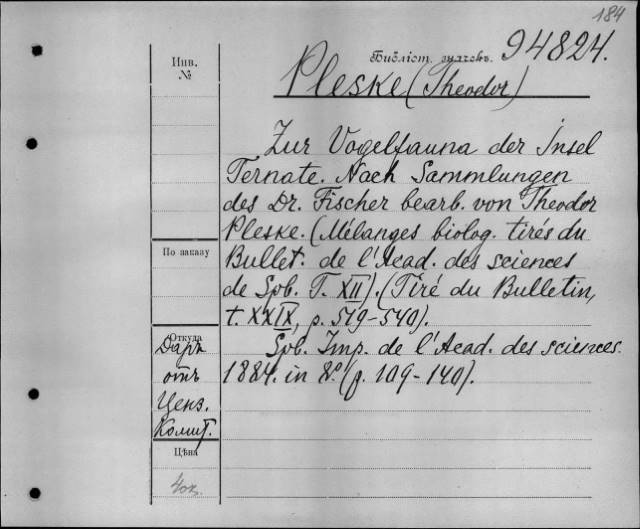 184
Инв.
№
Библіот. значокъ. 94824.
Pleske (Theodor)
Zur Vogelfauna der Insel
Ternate. Nach Sammlungen
des Dr. Fischer bearb. von Theodor
Pleske. (Mélanges biolog. tirés du
Bullet. de l'Acad. des sciences
de Spb. T. XII). (Tiré du Bulletin,
t. XXIX, p. 519-540).
Spb. Imp. de l'Acad. des sciences.
1884. in 8º (p. 109-140).
По заказу
Откуда
Даръ
отъ
Ценз.
Комит.
Цѣна
40к.